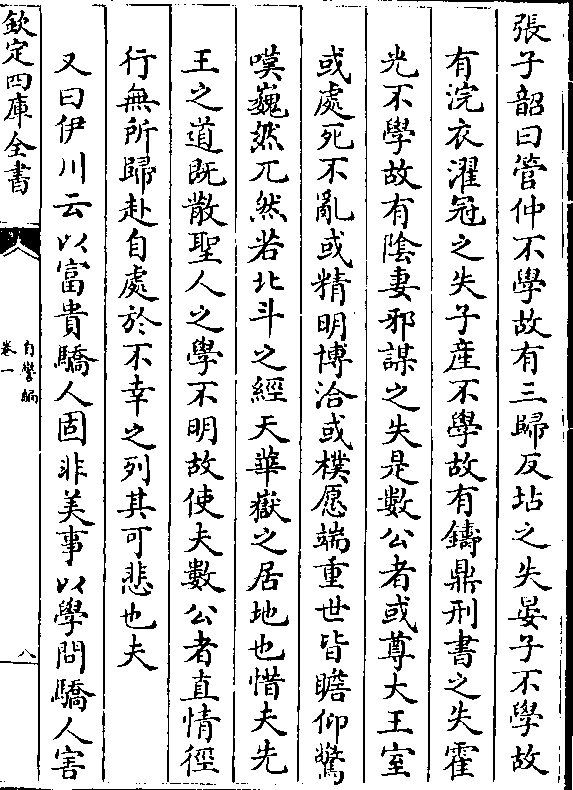 張子韶曰管仲不學故有三歸反坫之失晏子不學故
有浣衣濯冠之失子産不學故有鑄鼎刑書之失霍
光不學故有陰妻邪謀之失是數公者或尊大王室
或處死不亂或精明博洽或樸愿端重世皆瞻仰驚
嘆巍然兀然若北斗之經天華嶽之居地也惜夫先
王之道既散聖人之學不明故使夫數公者直情徑
行無所歸赴自處於不幸之列其可悲也夫
又曰伊川云以富貴驕人固非美事以學問驕人害
欽定四庫全書
自警編
卷一
八